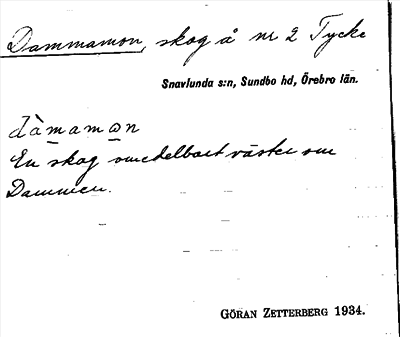 Dammamon, skog å nr 2 Tycke
Snavlunda s:n, Sundbo hd, Örebro län.
dàmamɷn
En skog omedelbart väster om
Dammen.
GÖRAN ZETTERBERG 1934.